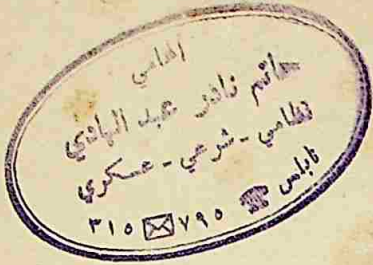 المحامي
حاتم نادر عبد الهادي
نظامي - شرعي - عسكري
نابلس ☎ ٧٩٥ ✉ ٣١٥